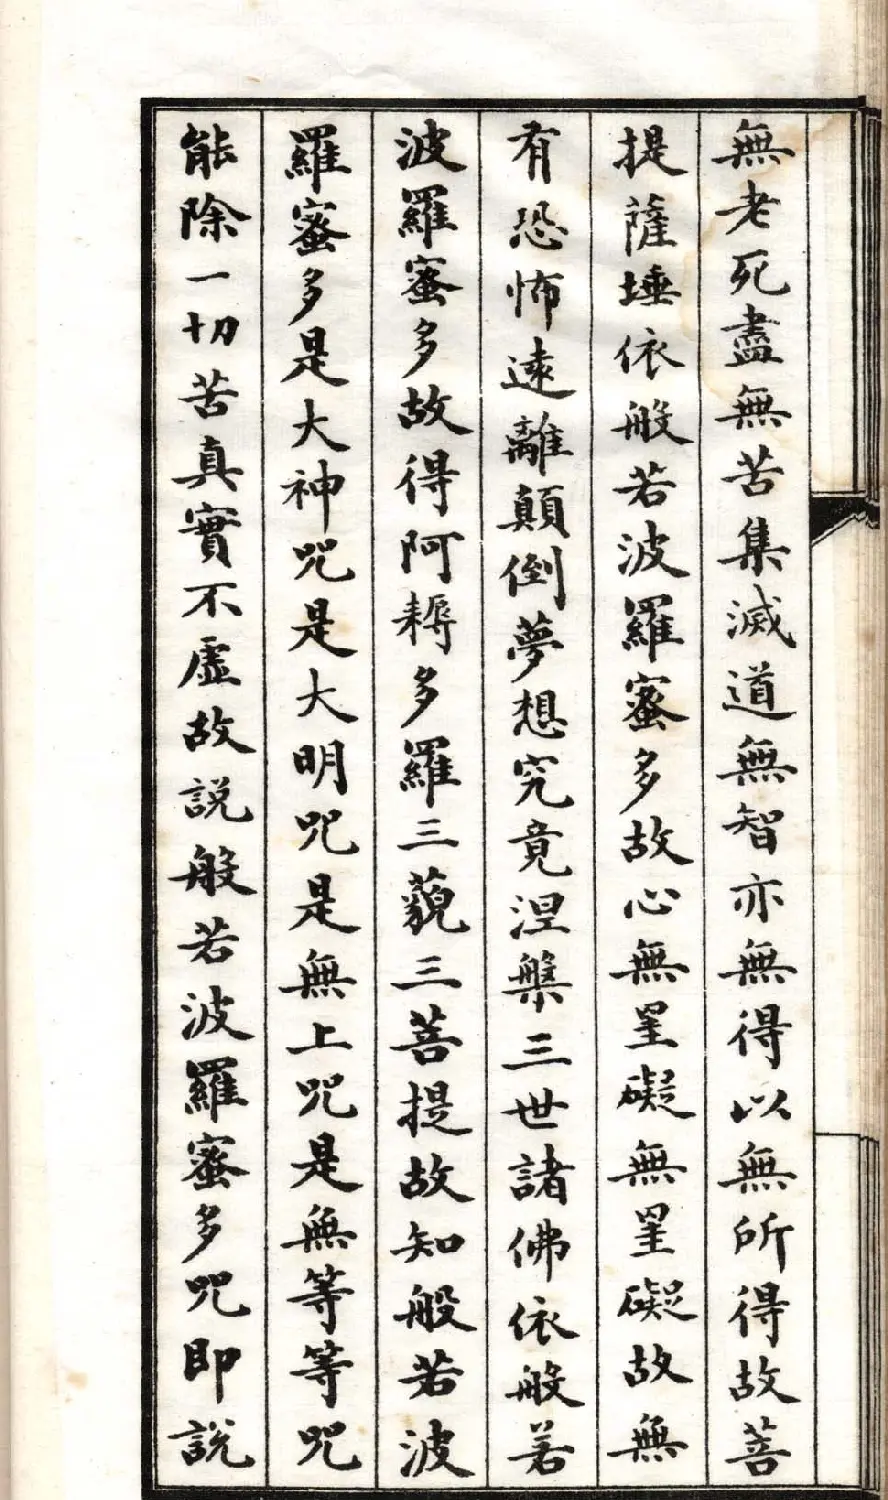 無老死盡無苦集滅道無智亦無得以無所得故菩
提薩埵依般若波羅蜜多故心無罣礙無罣礙故無
有恐怖遠離顛倒夢想究竟涅槃三世諸佛依般若
波羅蜜多故得阿耨多羅三藐三菩提故知般若波
羅蜜多是大神咒是大明咒是無上咒是無等等咒
能除一切苦真實不虛故說般若波羅蜜多咒即說